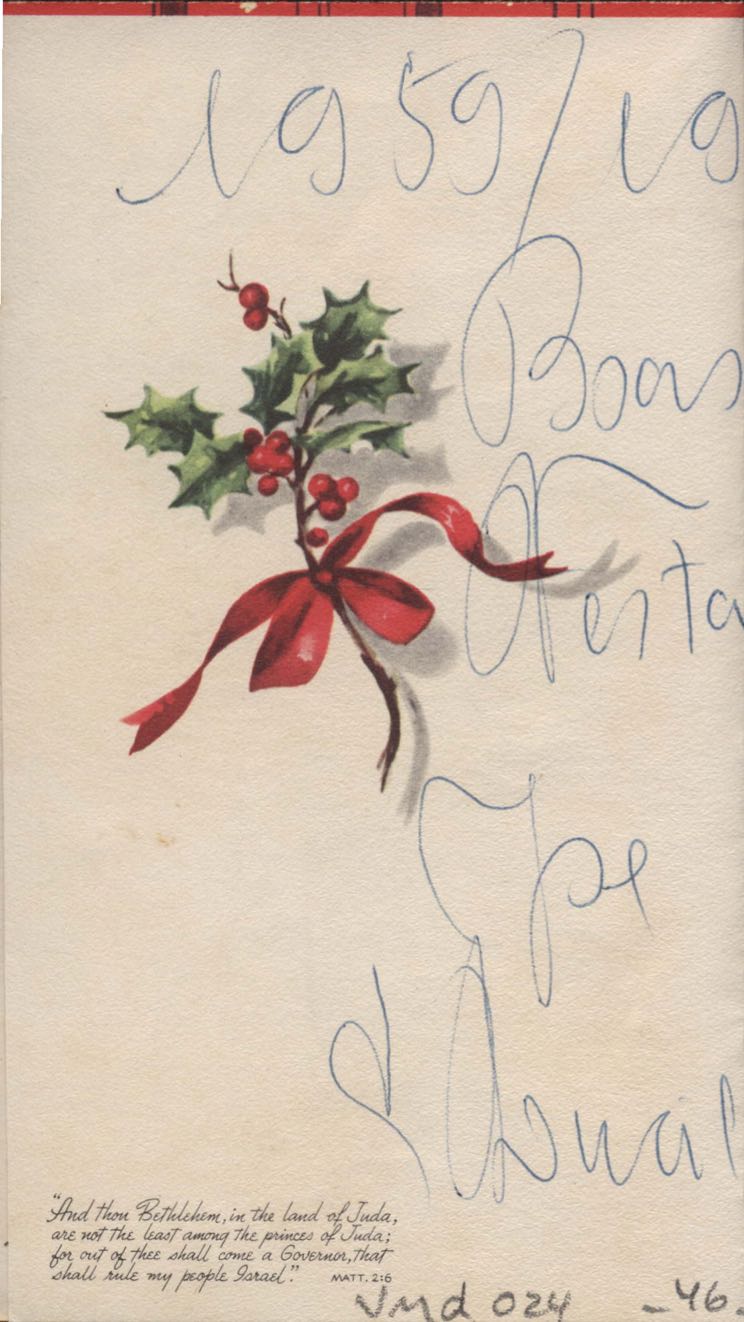 1959/19
Boas
Festa
"And thou Bethlehem, in the land of Juda,
are not the least among the princes of Juda;
for out of thee shall come a Governor, that
shall rule my people Israel." MATT. 2:6
024 -46-